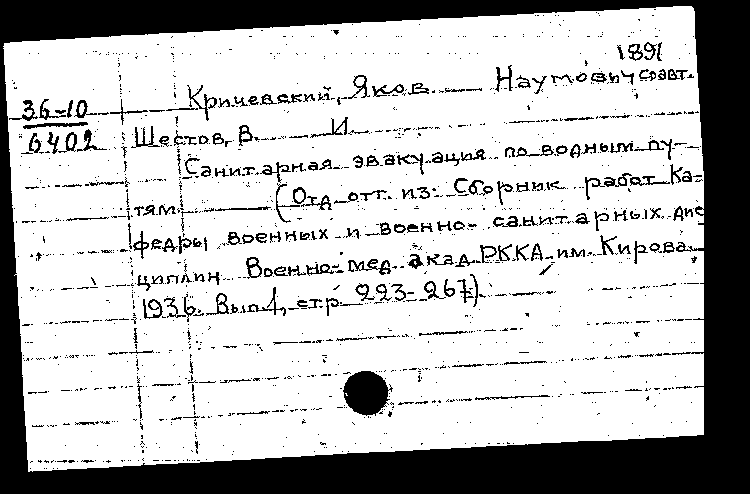 1891
36-10
6402
Кричевский, Яков Наумович соавт.
Шестов, В. И.
Санитарная эвакуация по водным пу-
тям (Отд. отт. из: Сборник работ Ка-
федры военных и военно-санитарных дис
циплин Военно-мед. акад. РККА им. Кирова
1936. Вып. 1, стр. 223-267).